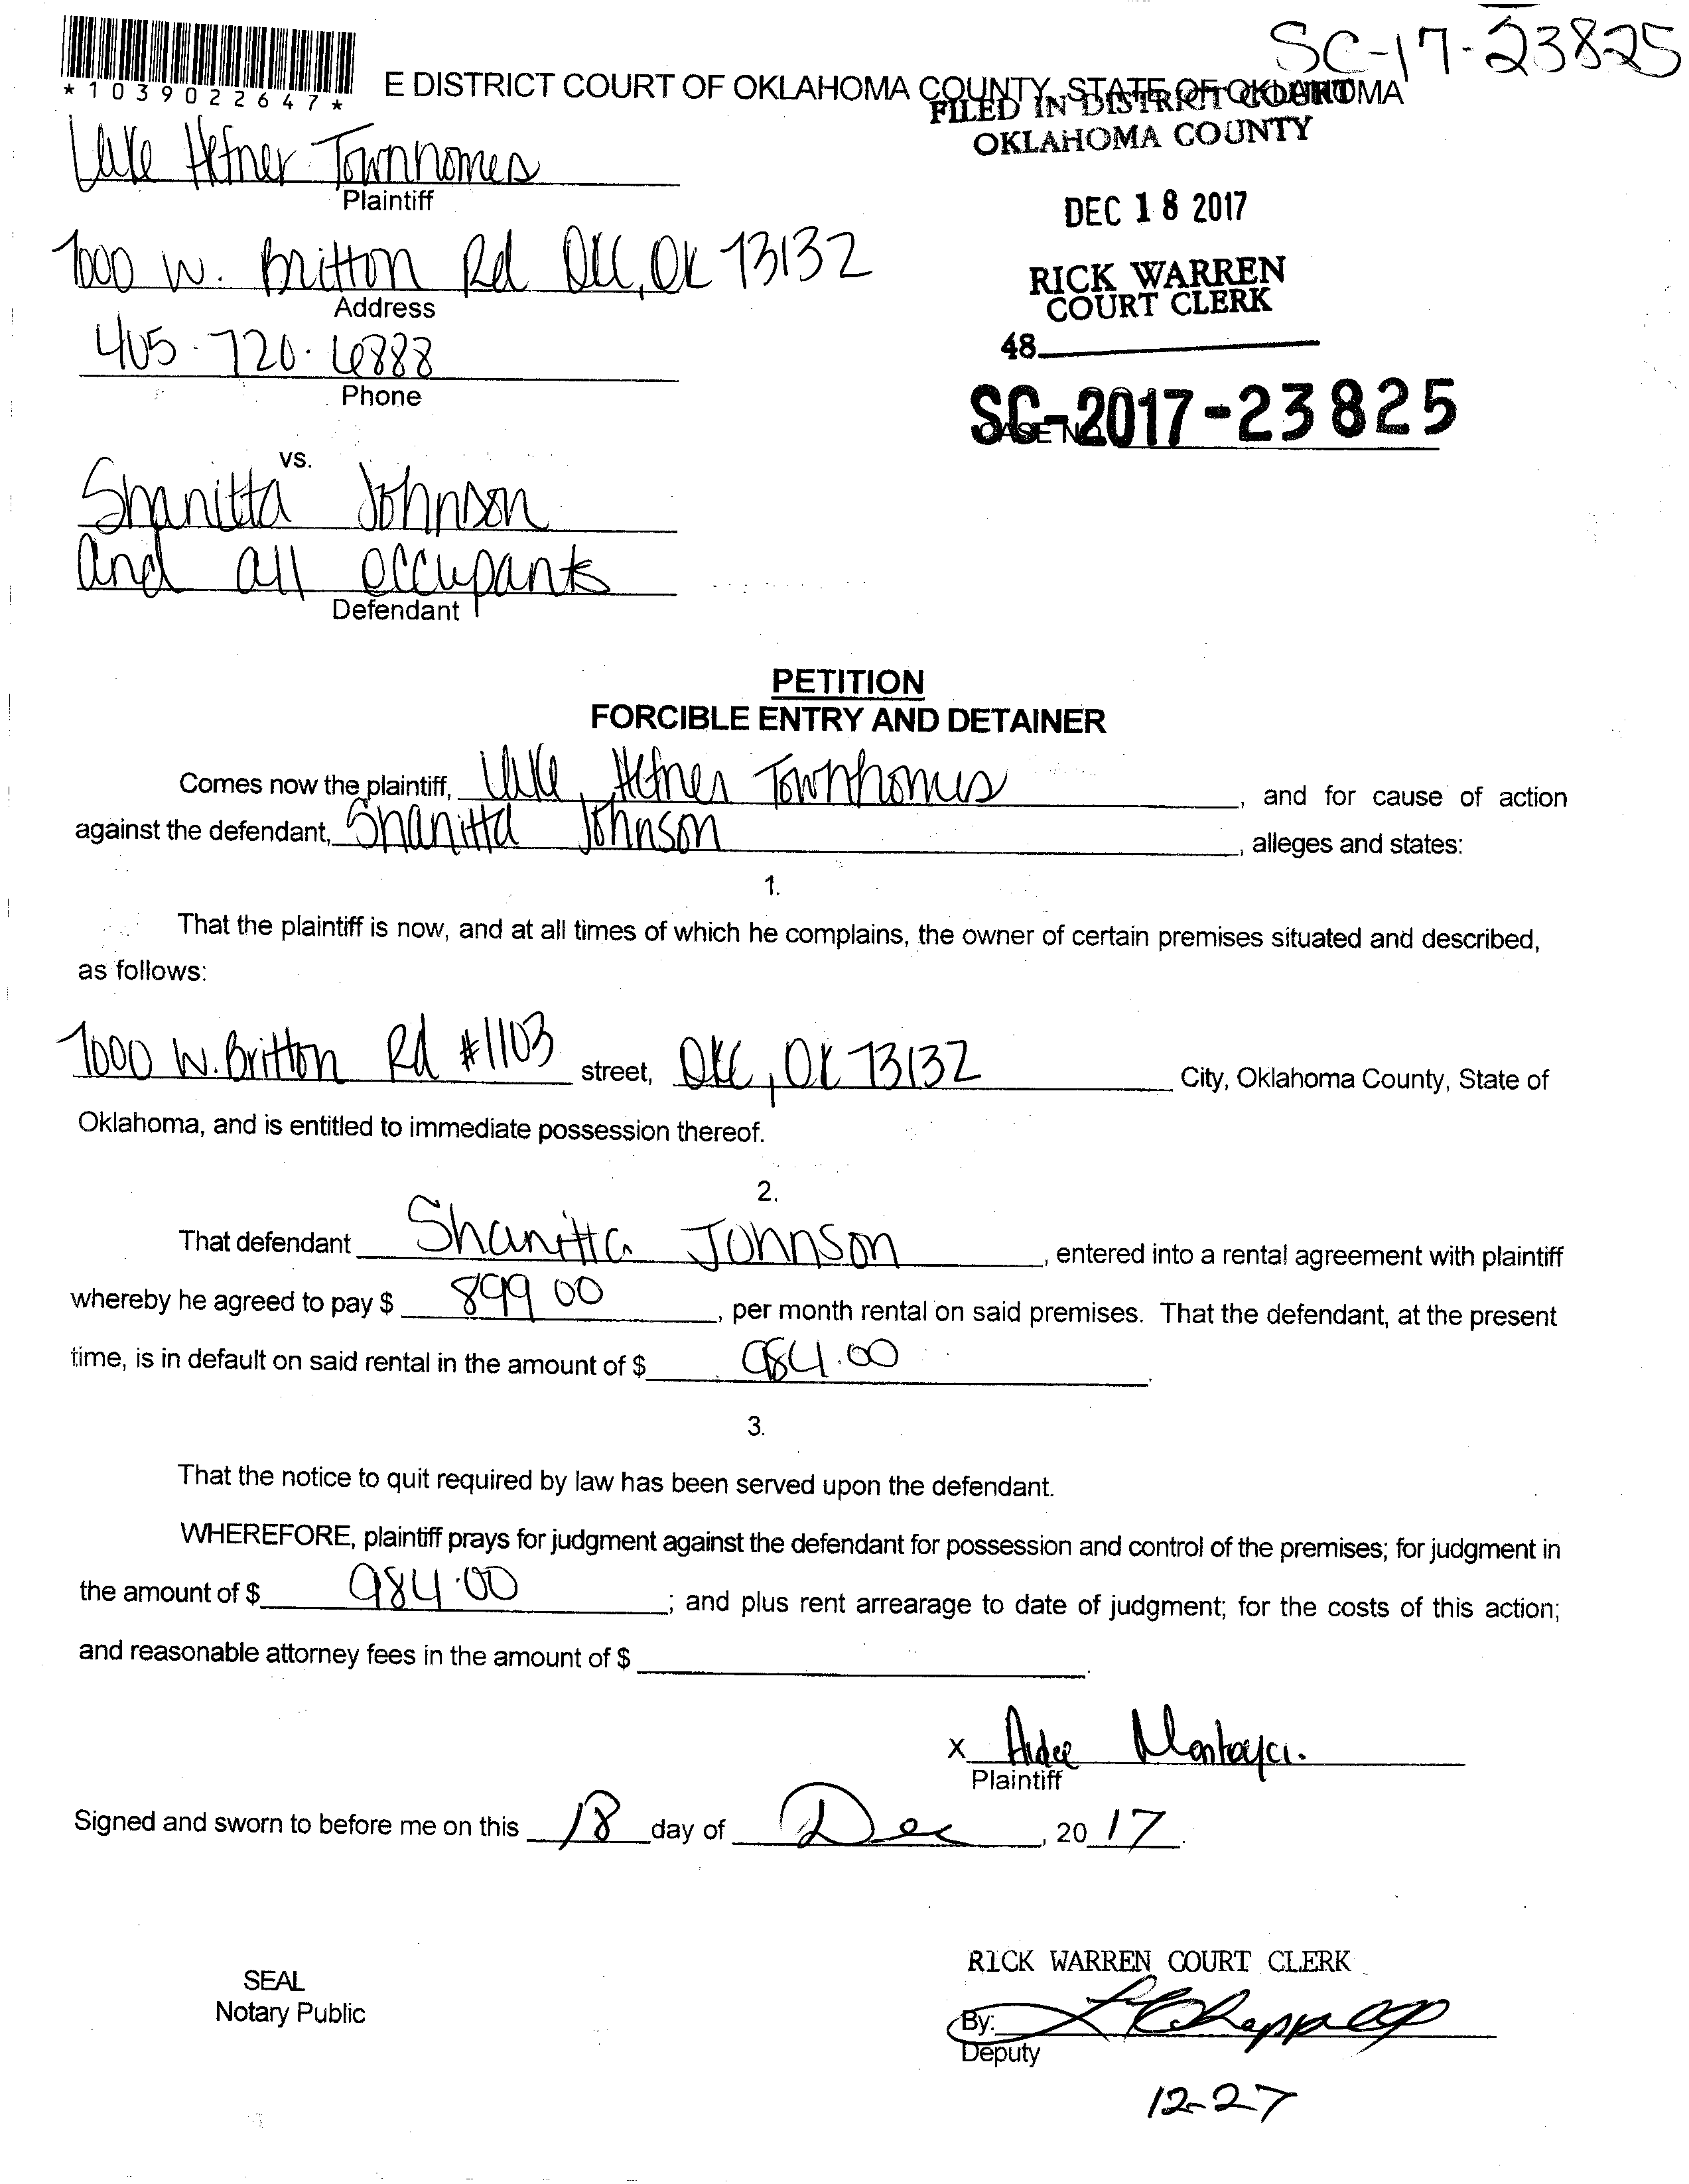 SC-17-23825
*1039022647*
E DISTRICT COURT OF OKLAHOMA COUNTY, STATE OF OKLAHOMA
FILED IN DISTRICT COURT
OKLAHOMA COUNTY
Lake Hefner Townhomes
Plaintiff
DEC 18 2017
7000 W. Britton Rd OKC, OK 73132
Address
RICK WARREN
COURT CLERK
405-720-6888
Phone
48
SC-2017-23825
CASE NO.
vs.
Shanitta Johnson
and all occupants
Defendant
PETITION
FORCIBLE ENTRY AND DETAINER
Comes now the plaintiff, Lake Hefner Townhomes, and for cause of action
against the defendant, Shanitta Johnson, alleges and states:
1.
That the plaintiff is now, and at all times of which he complains, the owner of certain premises situated and described,
as follows:
7000 W. Britton Rd #1103 street, OKC, OK 73132 City, Oklahoma County, State of
Oklahoma, and is entitled to immediate possession thereof.
2.
That defendant Shanitta Johnson, entered into a rental agreement with plaintiff
whereby he agreed to pay $ 899 00, per month rental on said premises. That the defendant, at the present
time, is in default on said rental in the amount of $ 984.00.
3.
That the notice to quit required by law has been served upon the defendant.
WHEREFORE, plaintiff prays for judgment against the defendant for possession and control of the premises; for judgment in
the amount of $ 984.00; and plus rent arrearage to date of judgment; for the costs of this action;
and reasonable attorney fees in the amount of $ .
x Aidee Montoya.
Plaintiff
Signed and sworn to before me on this 18 day of Dec, 20 17.
RICK WARREN COURT CLERK
SEAL
Notary Public
By:
Deputy
12-27